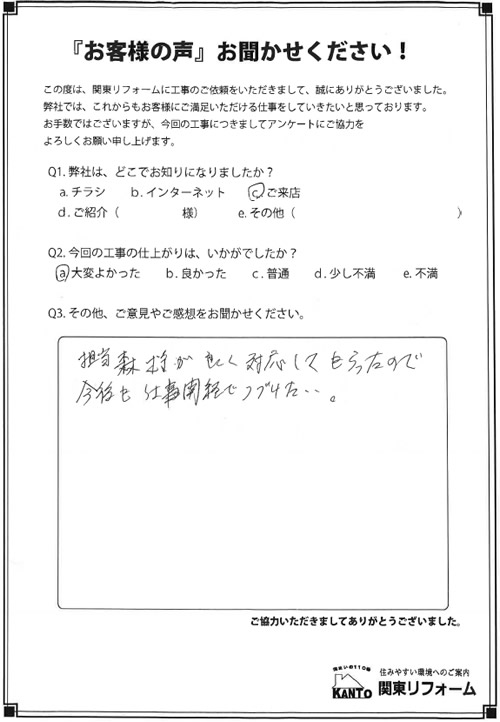 『お客様の声』お聞かせください！
この度は、関東リフォームに工事のご依頼をいただきまして、誠にありがとうございました。
弊社では、これからもお客様にご満足いただける仕事をしていきたいと思っております。
お手数ではございますが、今回の工事につきましてアンケートにご協力を
よろしくお願い申し上げます。
Q1. 弊社は、どこでお知りになりましたか？
a. チラシ　b. インターネット　c. ご来店
d. ご紹介（　様）　e. その他（　）
Q2. 今回の工事の仕上がりは、いかがでしたか？
a. 大変よかった　b. 良かった　c. 普通　d. 少し不満　e. 不満
Q3. その他、ご意見やご感想をお聞かせください。
担当森 が良く対応してもらったので
今後も仕事関
ご協力いただきましてありがとうございました。
住みやすい環境へのご案内
KANTO 関東リフォーム